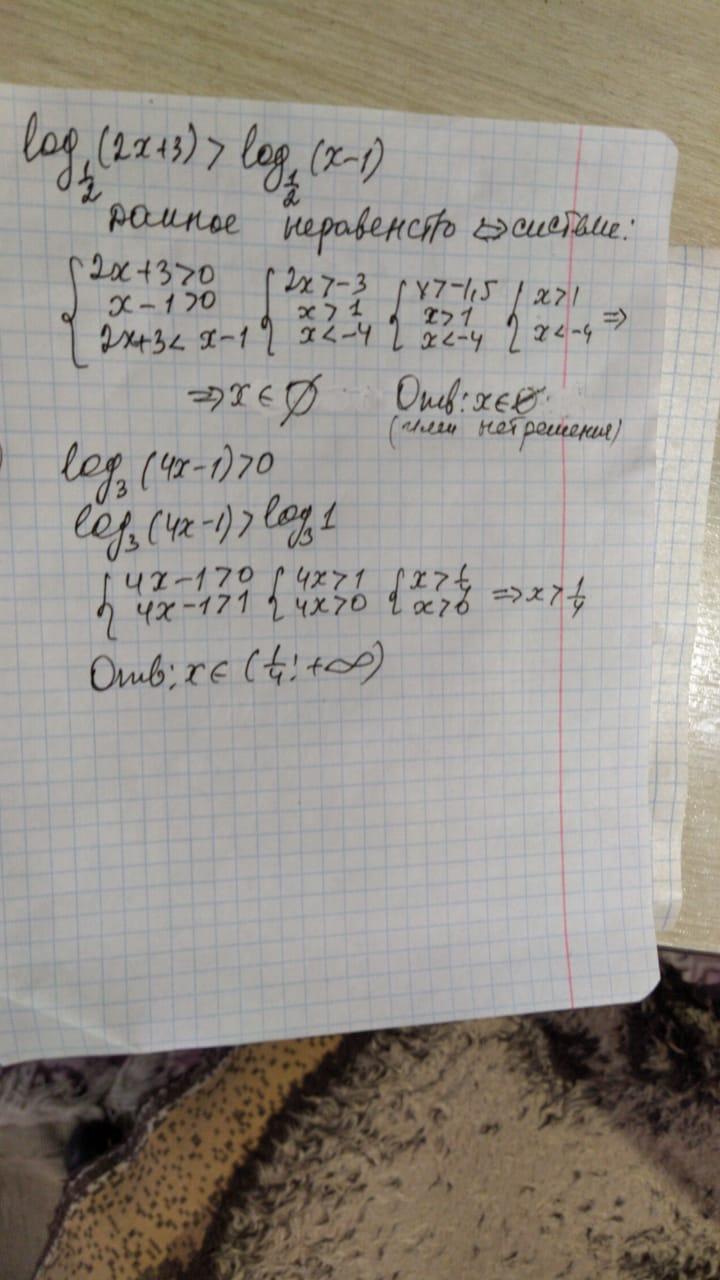 log_{1/2}(2x+3) > log_{1/2}(x-1)
данное неравенство ⇔ системе:
{2x+3>0 {2x>-3 {x>-1,5 {x>1
x-1>0 x>1 x>1 x<-4 ⇒
2x+3< x-1 x<-4 x<-4
⇒ x ∈ ∅ Отв: x∈∅.
(или нет решения)
) log₃(4x-1)>0
log₃(4x-1)>log₃1
{4x-1>0 {4x>1 {x>1/4 ⇒ x>1/4
4x-1>1 4x>0 x>0
Отв: x∈(1/4; +∞)